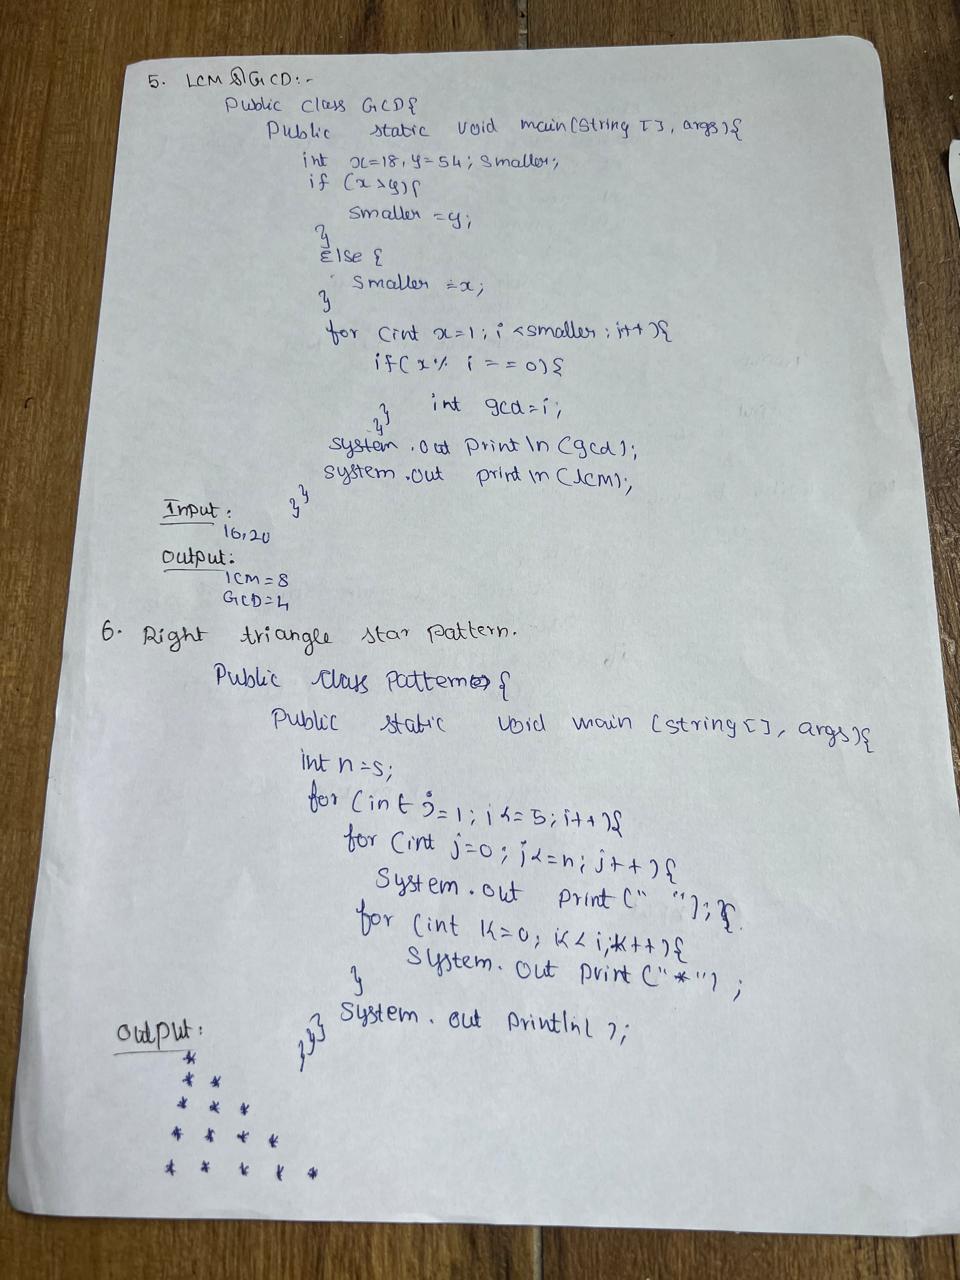 5. LCM & GCD:-
Public class GCD{
Public static void main(String [], args){
int x=18, y=54; smaller;
if (x>y){
smaller =y;
}
Else {
smaller =x;
}
for (int x=1; i <smaller; i++){
if(x% i ==0){
int gcd=i;
}}
system.out println(gcd);
system.out println(lcm);
}}
Input:
16,20
Output:
lCM=8
GCD=4
6. Right triangle star pattern.
Public class Pattern {
Public static void main (string [], args){
int n=5;
for (int i=1; i<=5; i++){
for (int j=0; j<=n; j++){
System.out print(" ");}
for (int k=0; k<i; k++){
System.out print("*");
}
System.out println( );
}}}
Output:
*
* *
* * *
* * * *
* * * * *